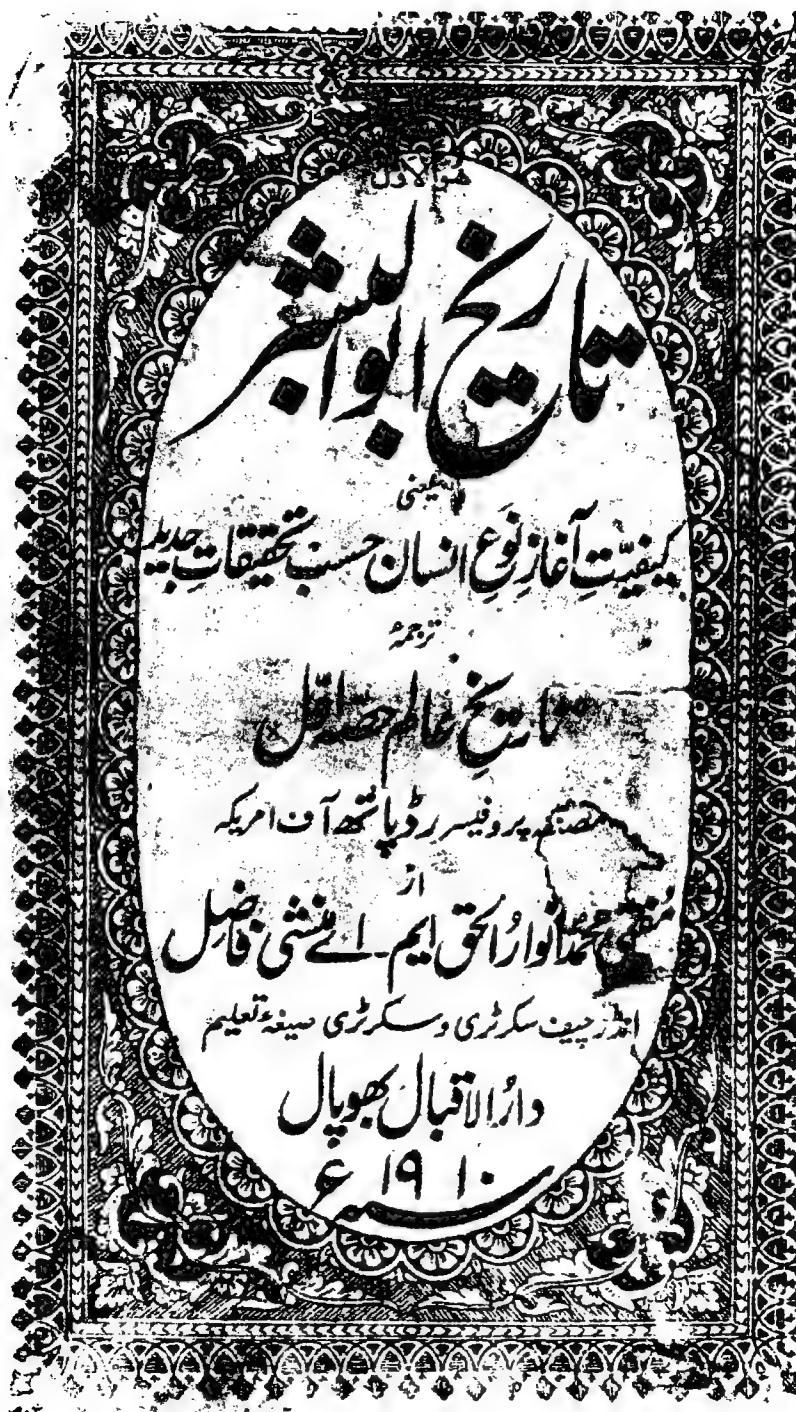 هو الاول
تاریخ ابوالبشر
یعنی
کیفیّتِ آغازِ نوعِ انسان حسب تحقیقاتِ جدیدہ
ترجمۂ
تاریخِ عالم حصہ اوّل
مصنفہ پروفیسر رڈپاتھ آف امریکہ
از
مفتی محمد انوارُ الحق ایم۔اے منشی فاضِل
انڈر چیف سکرٹری و سکرٹری صیغۂ تعلیم
دارُ الاقبال بھوپال
سنہ ۱۹۱۰ء